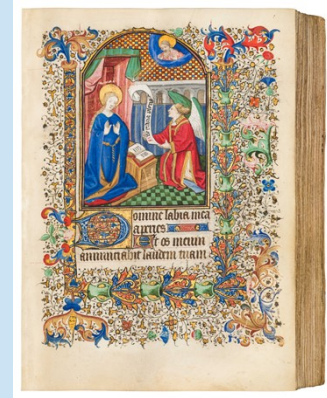 Domine labia mea
aperies. Et os meum
annunciabit laudem tuam.